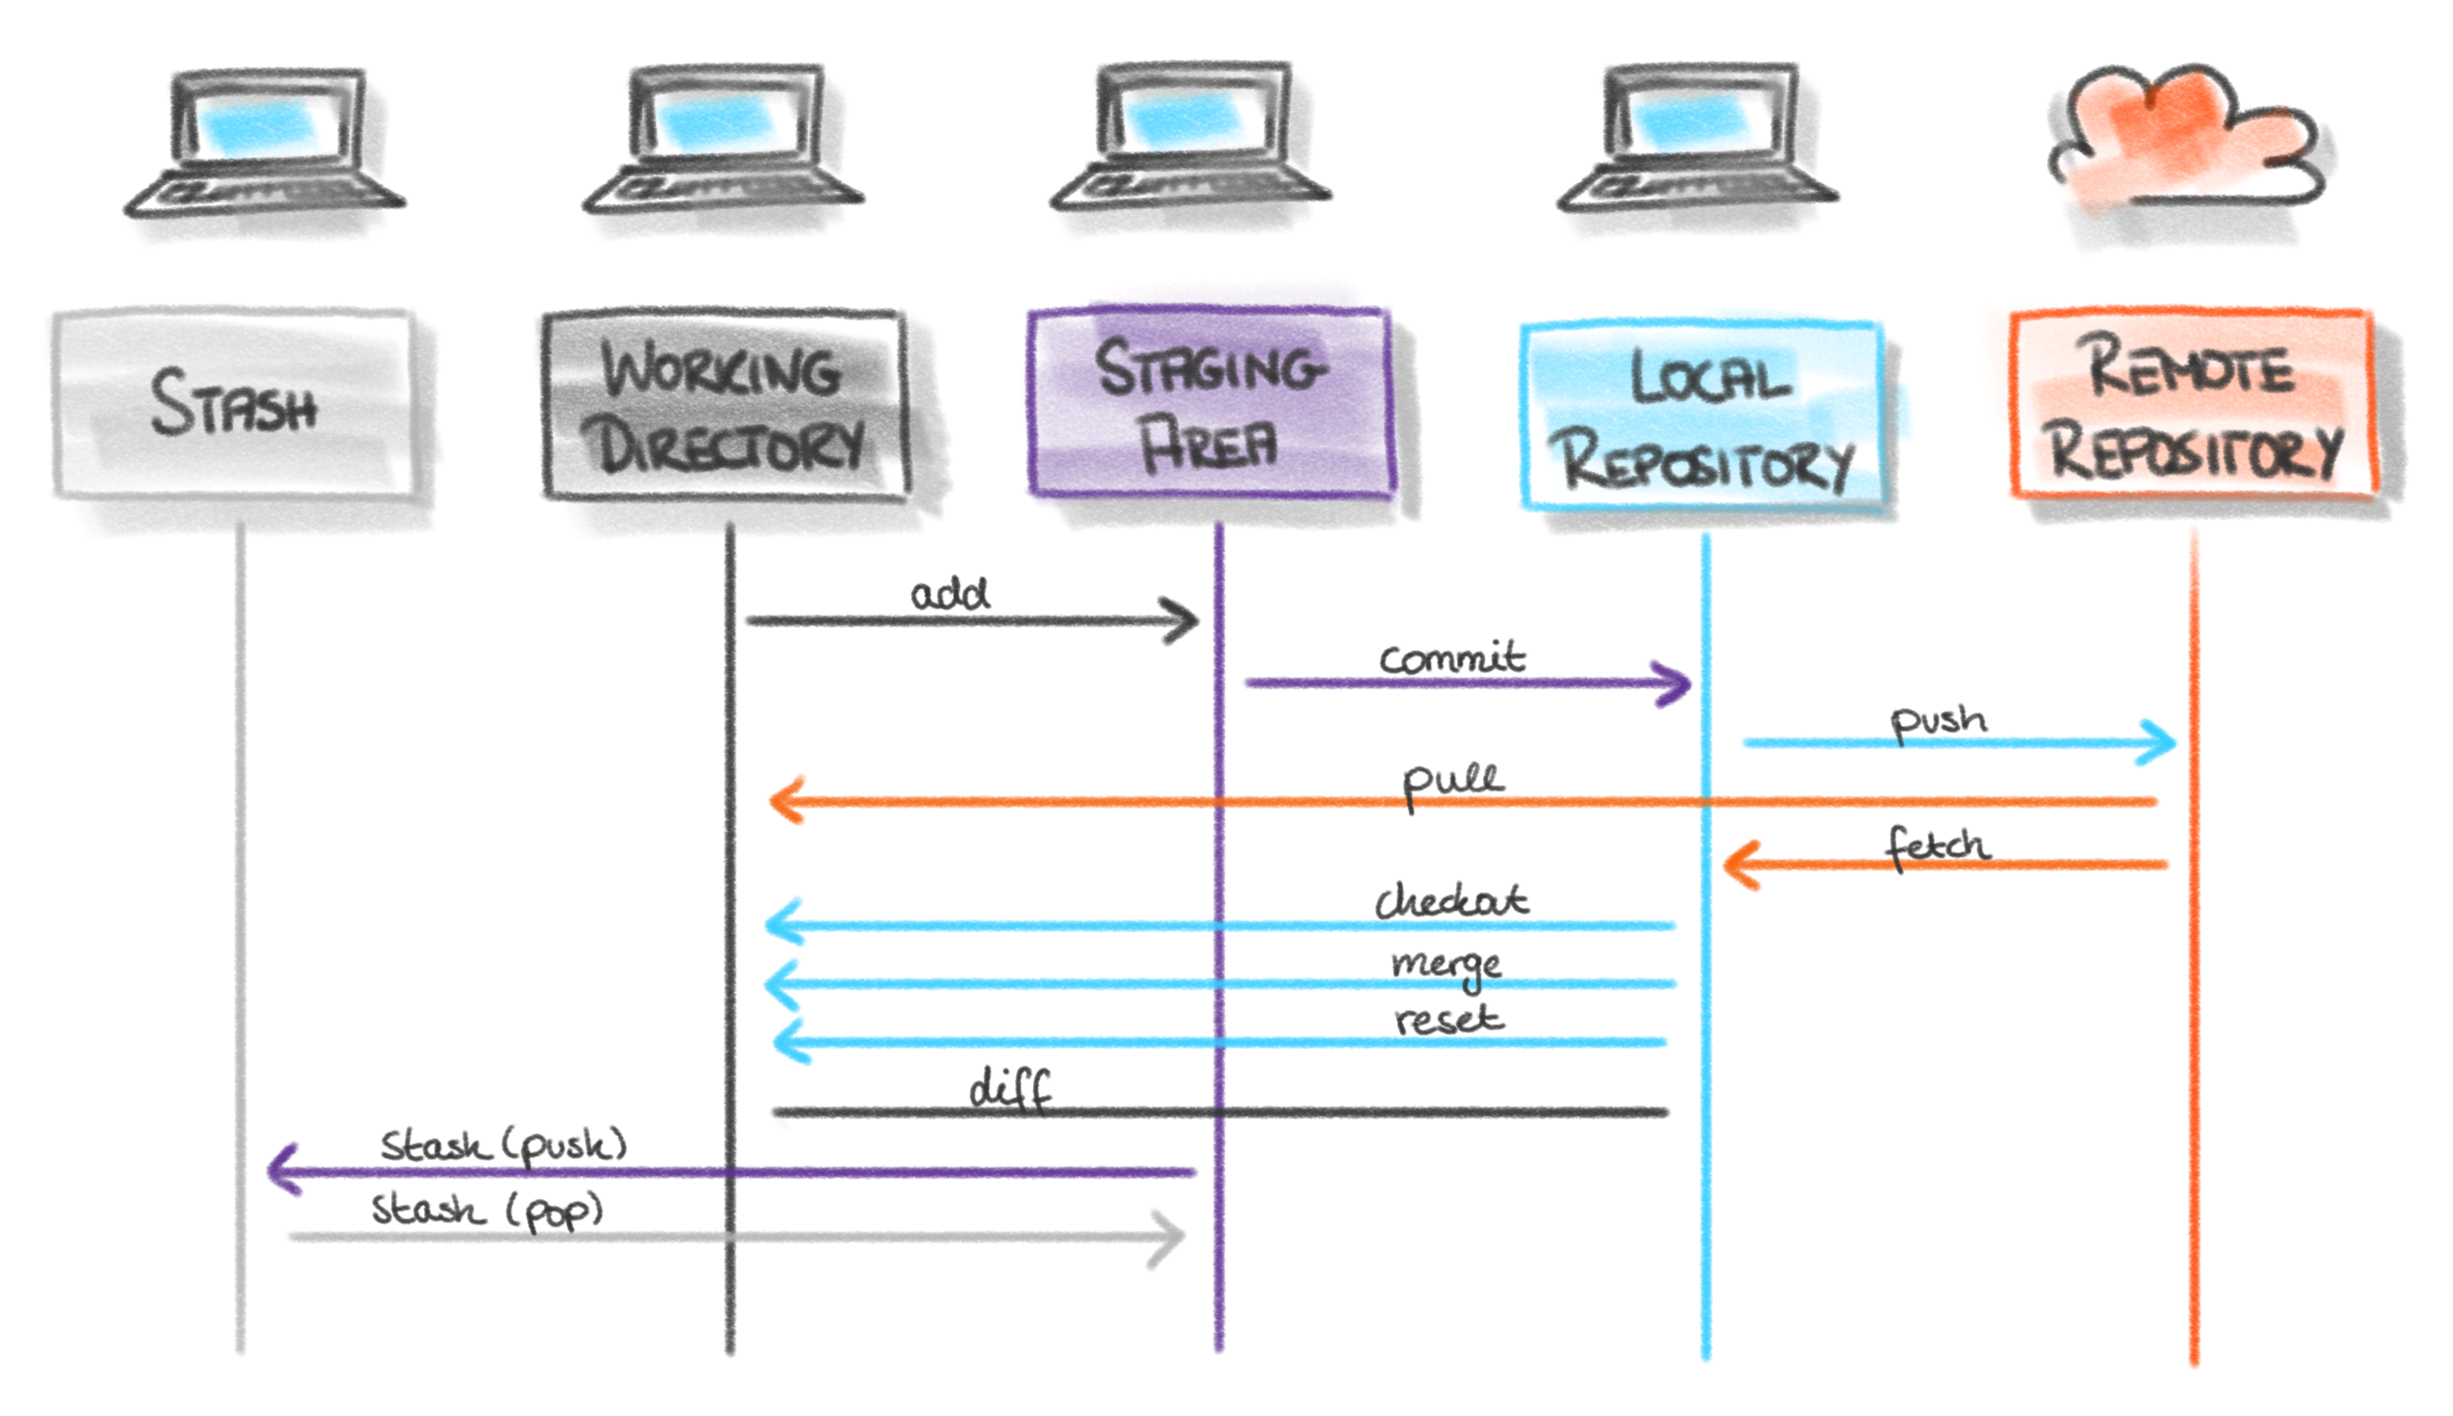 STASH
WORKING
DIRECTORY
STAGING
AREA
LOCAL
REPOSITORY
REMOTE
REPOSITORY
add
commit
push
pull
fetch
checkout
merge
reset
diff
stash (push)
stash (pop)